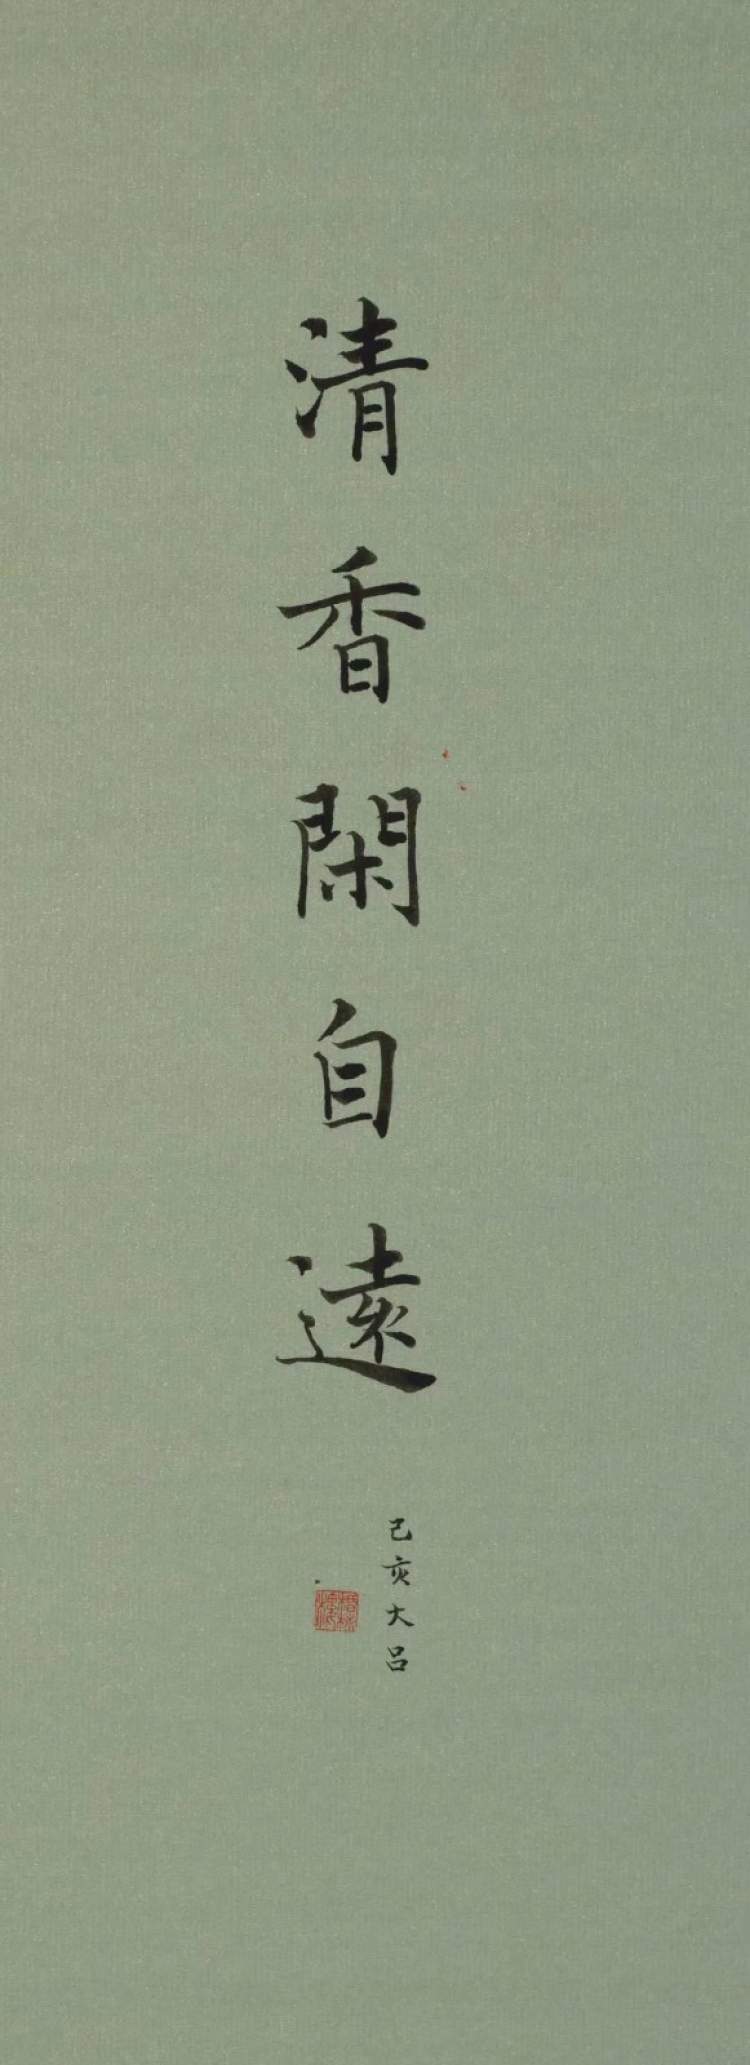 清香閑自遠
己亥大呂